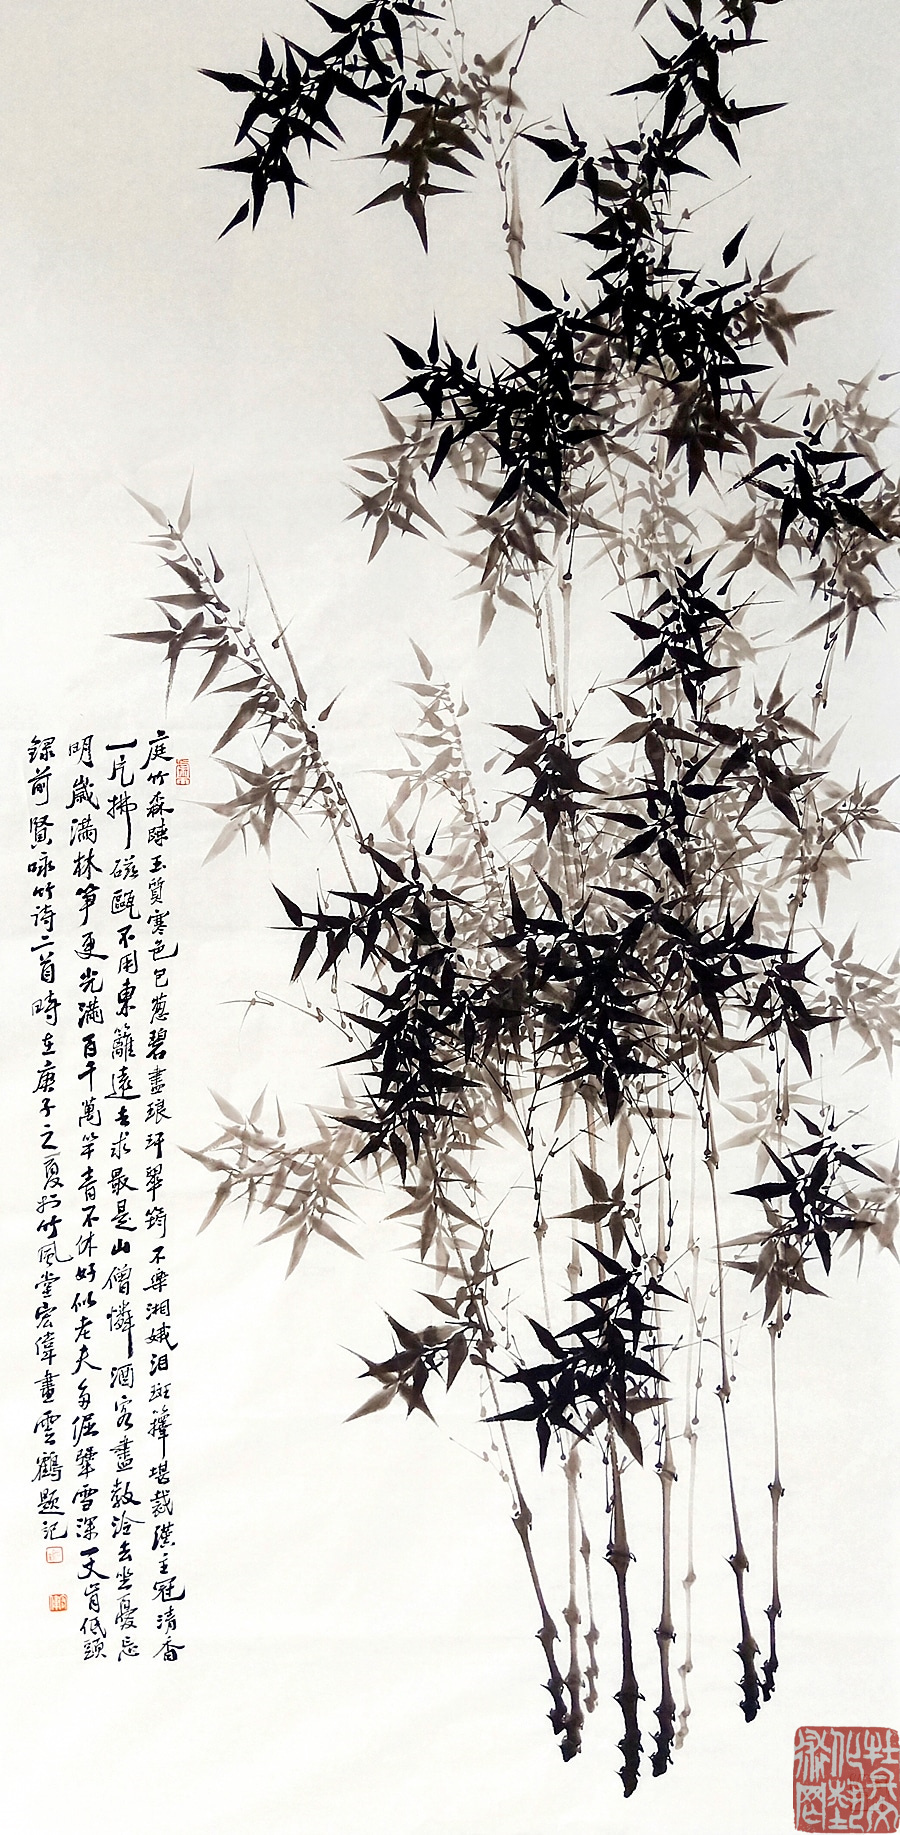 庭竹森疎玉質寒色包葱碧盡琅玕翠筠不樂湘娥泪斑籜堪裁漢主冠清香
一片拂磁甌不用東籬遠去求最是山僧憐酒客盡教泠去坐憂忘
明歲滿林笋更光滿百千萬竿青不休好似老夫多倔犟雪深一丈肯低頭
錄前賢咏竹詩二首時在庚子之夏於竹風堂宏偉畫雲鶴題記